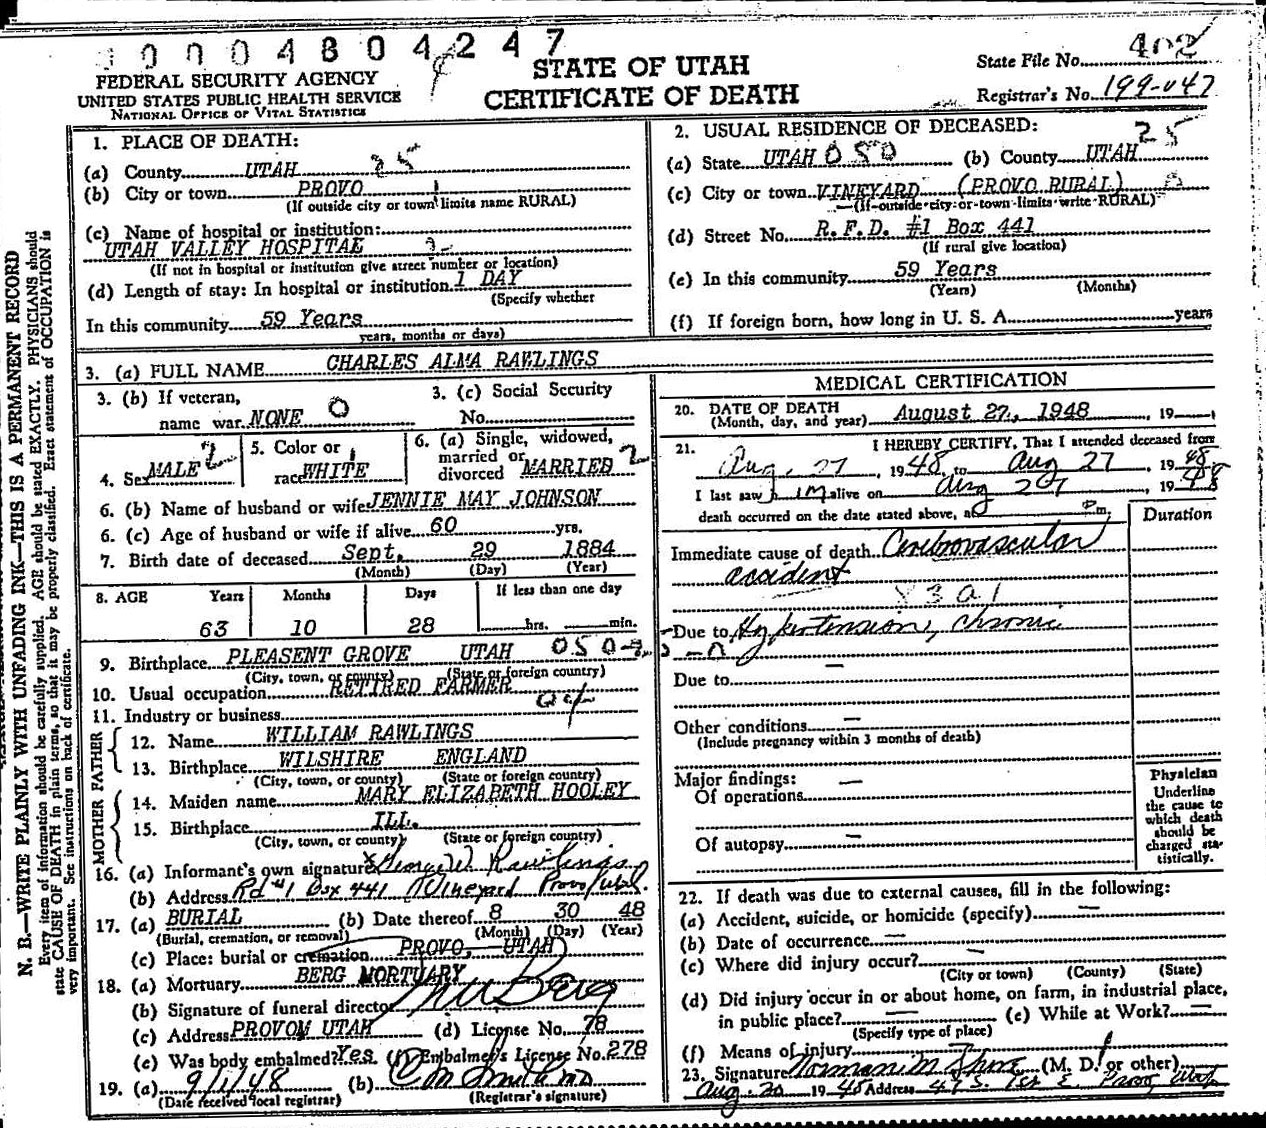 1 0 0 0 4 8 0 4 2 4 7
FEDERAL SECURITY AGENCY
UNITED STATES PUBLIC HEALTH SERVICE
NATIONAL OFFICE OF VITAL STATISTICS
STATE OF UTAH
CERTIFICATE OF DEATH
State File No. 402
Registrar's No. 199-047
N. B.—WRITE PLAINLY WITH UNFADING INK—THIS IS A PERMANENT RECORD
Every item of information should be carefully supplied. AGE should be stated EXACTLY. PHYSICIANS should
state CAUSE OF DEATH in plain terms, so that it may be properly classified. Exact statement of OCCUPATION is
very important. See instructions on back of certificate.
1. PLACE OF DEATH:
(a) County UTAH 25
(b) City or town PROVO 1
(If outside city or town limits name RURAL)
(c) Name of hospital or institution:
UTAH VALLEY HOSPITAL 2
(If not in hospital or institution give street number or location)
(d) Length of stay: In hospital or institution 1 DAY
(Specify whether
In this community 59 Years
years, months or days)
2. USUAL RESIDENCE OF DECEASED:
(a) State UTAH 050 (b) County UTAH 25
(c) City or town VINEYARD (PROVO RURAL)
(If outside city or town limits write RURAL)
(d) Street No. R.F.D. #1 Box 441
(If rural give location)
(e) In this community 59 Years
(Years) (Months)
(f) If foreign born, how long in U. S. A. years
3. (a) FULL NAME CHARLES ALMA RAWLINGS
3. (b) If veteran,
name war NONE 0
3. (c) Social Security
No.
4. Sex MALE 2
5. Color or
race WHITE
6. (a) Single, widowed,
married or
divorced MARRIED 2
6. (b) Name of husband or wife JENNIE MAY JOHNSON
6. (c) Age of husband or wife if alive 60 yrs.
7. Birth date of deceased Sept. 29 1884
(Month) (Day) (Year)
8. AGE Years Months Days If less than one day
63 10 28 hrs. min.
9. Birthplace PLEASENT GROVE UTAH 050
(City, town, or county) (State or foreign country)
10. Usual occupation RETIRED FARMER
11. Industry or business
FATHER
12. Name WILLIAM RAWLINGS
13. Birthplace WILSHIRE ENGLAND
(City, town, or county) (State or foreign country)
MOTHER
14. Maiden name MARY ELIZABETH HOOLEY
15. Birthplace ILL.
(City, town, or county) (State or foreign country)
16. (a) Informant's own signature X George W. Rawlings
(b) Address Rd #1 Box 441 Vineyard Provo Utah.
17. (a) BURIAL (b) Date thereof 8 30 48
(Burial, cremation, or removal) (Month) (Day) (Year)
(c) Place: burial or cremation PROVO, UTAH
18. (a) Mortuary BERG MORTUARY
(b) Signature of funeral director Berg
(c) Address PROVOM UTAH (d) License No. 78
(e) Was body embalmed? Yes (f) Embalmer's License No. 278
19. (a) 9/1/48 (b) C M Smith MD
(Date received local registrar) (Registrar's signature)
MEDICAL CERTIFICATION
20. DATE OF DEATH August 27, 1948, 19
(Month, day, and year)
21. I HEREBY CERTIFY, That I attended deceased from
Aug. 27, 1948, to Aug 27, 1948
I last saw him alive on Aug 27, 1948
death occurred on the date stated above, at P m.
Duration
Immediate cause of death Cerebrovascular
accident
Due to Hypertension, chronic
Due to —
Other conditions —
(Include pregnancy within 3 months of death)
Major findings: —
Of operations
Of autopsy —
Physician
Underline
the cause to
which death
should be
charged sta-
tistically.
22. If death was due to external causes, fill in the following:
(a) Accident, suicide, or homicide (specify) —
(b) Date of occurrence —
(c) Where did injury occur? —
(City or town) (County) (State)
(d) Did injury occur in or about home, on farm, in industrial place,
in public place? — (e) While at Work? —
(Specify type of place)
(f) Means of injury —
23. Signature (M. D. or other)
Aug. 30 1948 Address 47 S. 1st E. Provo Utah